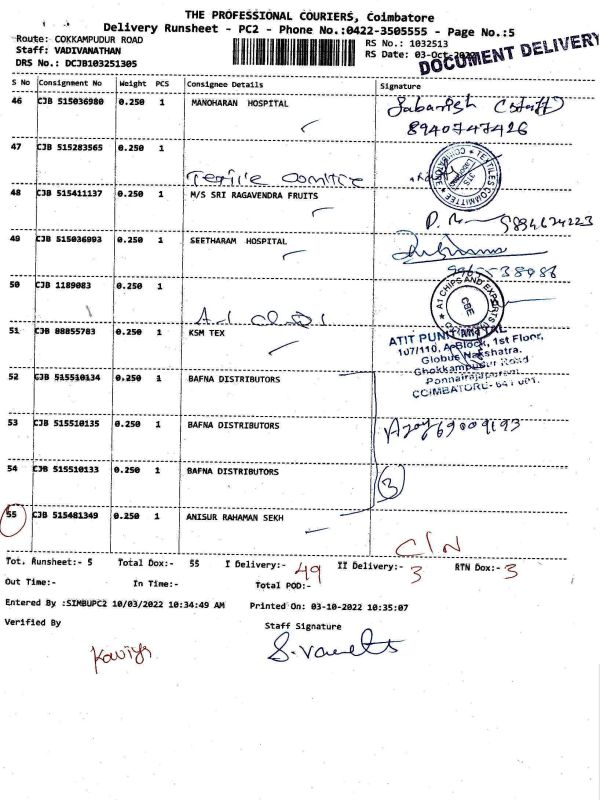 THE PROFESSIONAL COURIERS, Coimbatore
Delivery Runsheet - PC2 - Phone No.:0422-3505555 - Page No.:5
Route: COKKAMPUDUR ROAD
Staff: VADIVANATHAN
DRS No.: DCJB103251305
RS No.: 1032513
RS Date: 03-Oct-2022
DOCUMENT DELIVERY
S No Consignment No Weight PCS Consignee Details Signature
46 CJB 515036980 0.250 1 MANOHARAN HOSPITAL
Sabarish (Staff)
8940747426
47 CJB 515283565 0.250 1
TEXTILES COMMITTEE
48 CJB 515411137 0.250 1 M/S SRI RAGAVENDRA FRUITS
49 CJB 515036993 0.250 1 SEETHARAM HOSPITAL
50 CJB 1189083 0.250 1
A1 CHIPS AND EXPORTS
CBE
51 CJB 88855783 0.250 1 KSM TEX
107/110, A-Block, 1st Floor,
Globus Nakshatra,
Chokkampudur Road
COIMBATORE- 641 001.
52 CJB 515510134 0.250 1 BAFNA DISTRIBUTORS
53 CJB 515510135 0.250 1 BAFNA DISTRIBUTORS
54 CJB 515510133 0.250 1 BAFNA DISTRIBUTORS
3
55 CJB 515481349 0.250 1 ANISUR RAHAMAN SEKH
C/N
Tot. Runsheet:- 5 Total Dox:- 55 I Delivery:- 49 II Delivery:- 3 RTN Dox:- 3
Out Time:- In Time:- Total POD:-
Entered By :SIMBUPC2 10/03/2022 10:34:49 AM Printed On: 03-10-2022 10:35:07
Verified By Staff Signature